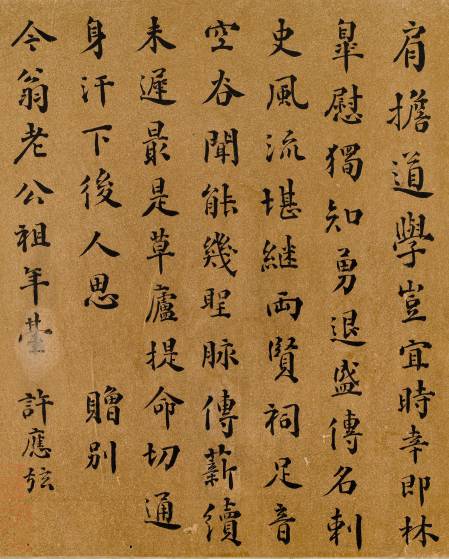 肩擔道學豈宜時幸即林
臯慰獨知勇退盛傳名刺
史風流堪継両賢祠足音
空谷聞能幾聖脉傳薪續
未遲最是草廬提命切通
身汗下後人思　贈別
今翁老公祖年䑓　許應弦